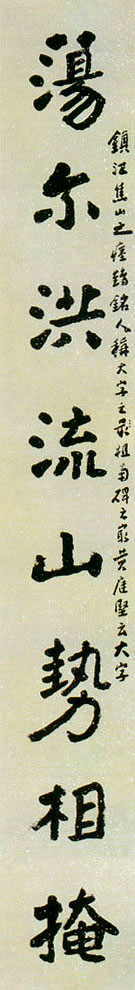 蕩尔洪流山勢相掩
鎮江焦山之瘞鶴銘人稱大字之祖南碑之宗黃庭堅云大字